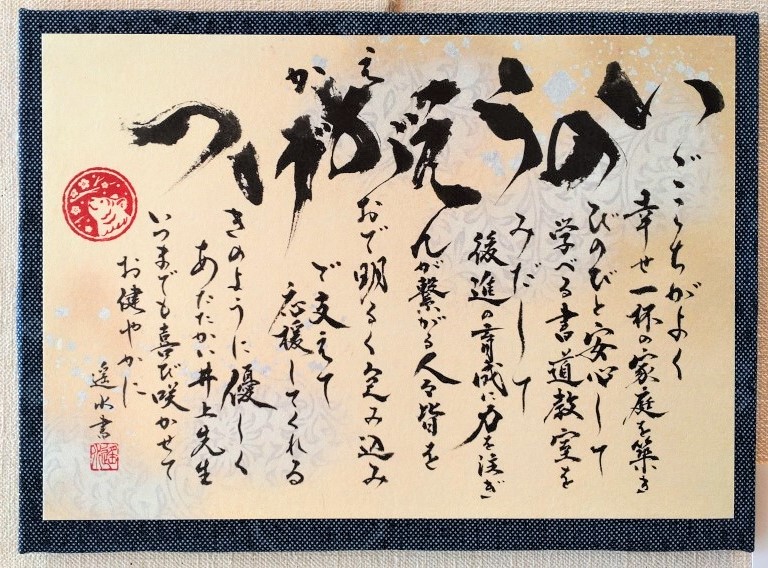 いごこちがよく
幸せ一杯の家庭を築き
のびのびと安心して
学べる書道教室を
うみだして
後進の育成に力を注ぎ
えんが繋がる人々皆を
えがおで明るく包み込み
かげで支えて
応援してくれる
つきのように優しく
あたたかい井上先生
いつまでも喜び咲かせて
お健やかに
遥水書